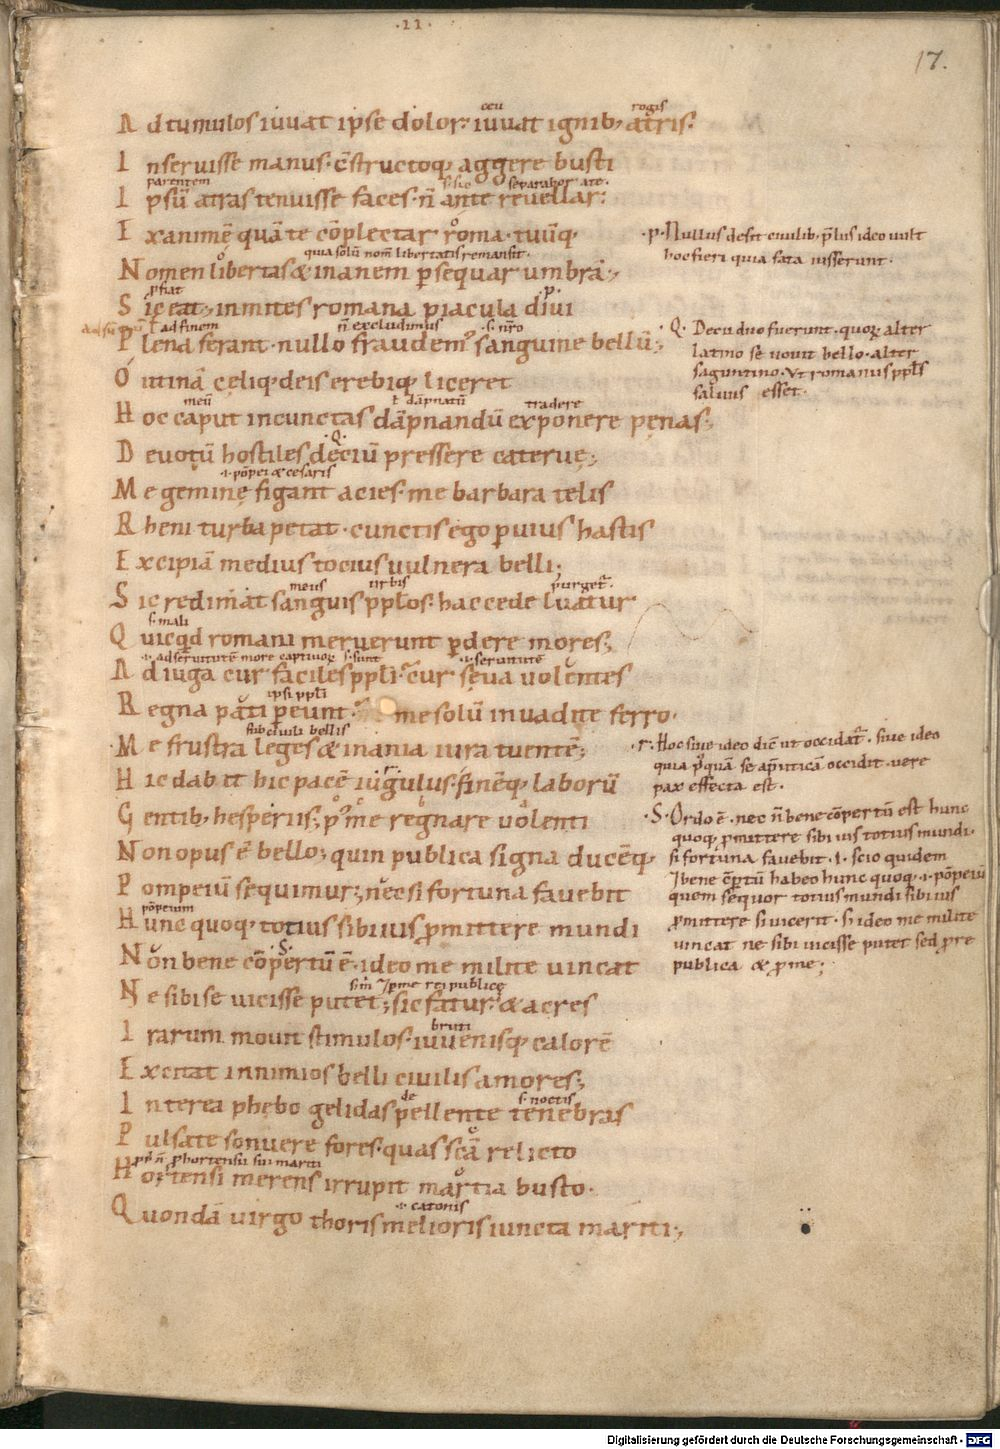 .II.
17.
ceu rogis
A d tumulos iuuat ipse dolor: iuuat ignib; atris.
I nseruisse manus. c̄structoq; aggere busti
parentem s. sic separabor a te.
I psū atras tenuisse faces. n̄ ante reuellar:
E xanimē quā te cōplectar roma. tuūq;
quia solū nom̄ libertatis remansit.
N omen libertas & inanem p̄sequar umbrā;
fiat .p.
S ic eat; inmites romana piacula diui
ł ad finem n̄ excludimus .s. nr̄o
P lena ferant. nullo fraudem' sanguine bellū;
O utinā cęliq; deis erebiq; liceret
meū ł dāpnatū tradere
H oc caput in cunctas dāpnandū exponere pęnas;
.Q.
D euotū hostiles deciū pressere cateruę;
.i. pōpei & cesaris
M e geminę figant acies. me barbara telis
R heni turba petat. cunctis ego p̄uius hastis
E xcipiā medius tocius uulnera belli;
meus urbis purget̄.
S ic redimat sanguis pplos. hac cede luatur
s. mali
Q uicq̇d romani meruerunt p̄dere mores;
.i. ad seruitutē more captiuoꝝ s. sunt .i. seruitutē
A d iuga cur faciles ppli. cur sęua uolentes
ipsi ppli
R egna pati p̄eunt. me solū inuadite ferro.
sub ciuili bellis
.M e frustra leges & inania iura tuentē;
H ic dabit hic pacē iugulus. finēq; laborū
G entib; hesperiis; p' me regnare uolenti
N on opus ē bello; quin publica signa ducēq;
P ompeiū sequimur; nec si fortuna fauebit
pōpeium
H unc quoq; totius sibi ius p̄mittere mundi
.S.
N on bene cōpertū ē. ideo me milite uincat
sim̄ 7 pme rei publicę
N e sibi se uicisse putet; sic fatur. & acres
I rarum mouit stimulos. iuuenisq; calorē
bruti
E xcitat in nimios belli ciuilis amores;
de s. noctis
I nterea phębo gelidas pellente tenebras
P ulsatę sonuere fores. quas scā relicto
p hortensii sui mariti
H ortensi merens irrupit martia busto.
.i. catonis
Q uondā uirgo thoris melioris iuncta mariti;
.p. Nullus desit ciuilib; p̄lus ideo uult
hoc fieri quia fata iusserunt.
Q. Decii duo fuerunt. quoꝝ alter
latino se uouit bello. alter
saguntino. Vt romanus ppls
saluus esset.
.r. Hoc siue ideo dic̄ ut occidat̄. siue ideo
quia p'quā se ap̄ uticā occidit. uere
pax effecta est.
.S. Ordo ē. nec n̄ bene cōpertū est hunc
quoq; p̄mittere sibi ius totius mundi.
si fortuna fauebit. .i. scio quidem
7 bene cp̄tū habeo hunc quoq; .i. pōpeiū
quem sequor totius mundi sibi ius
p̄mittere si uicerit. s; ideo me milite
uincat ne sibi uicisse putet sed p̄ re
publica & p̄ me;
Digitalisierung gefördert durch die Deutsche Forschungsgemeinschaft - DFG